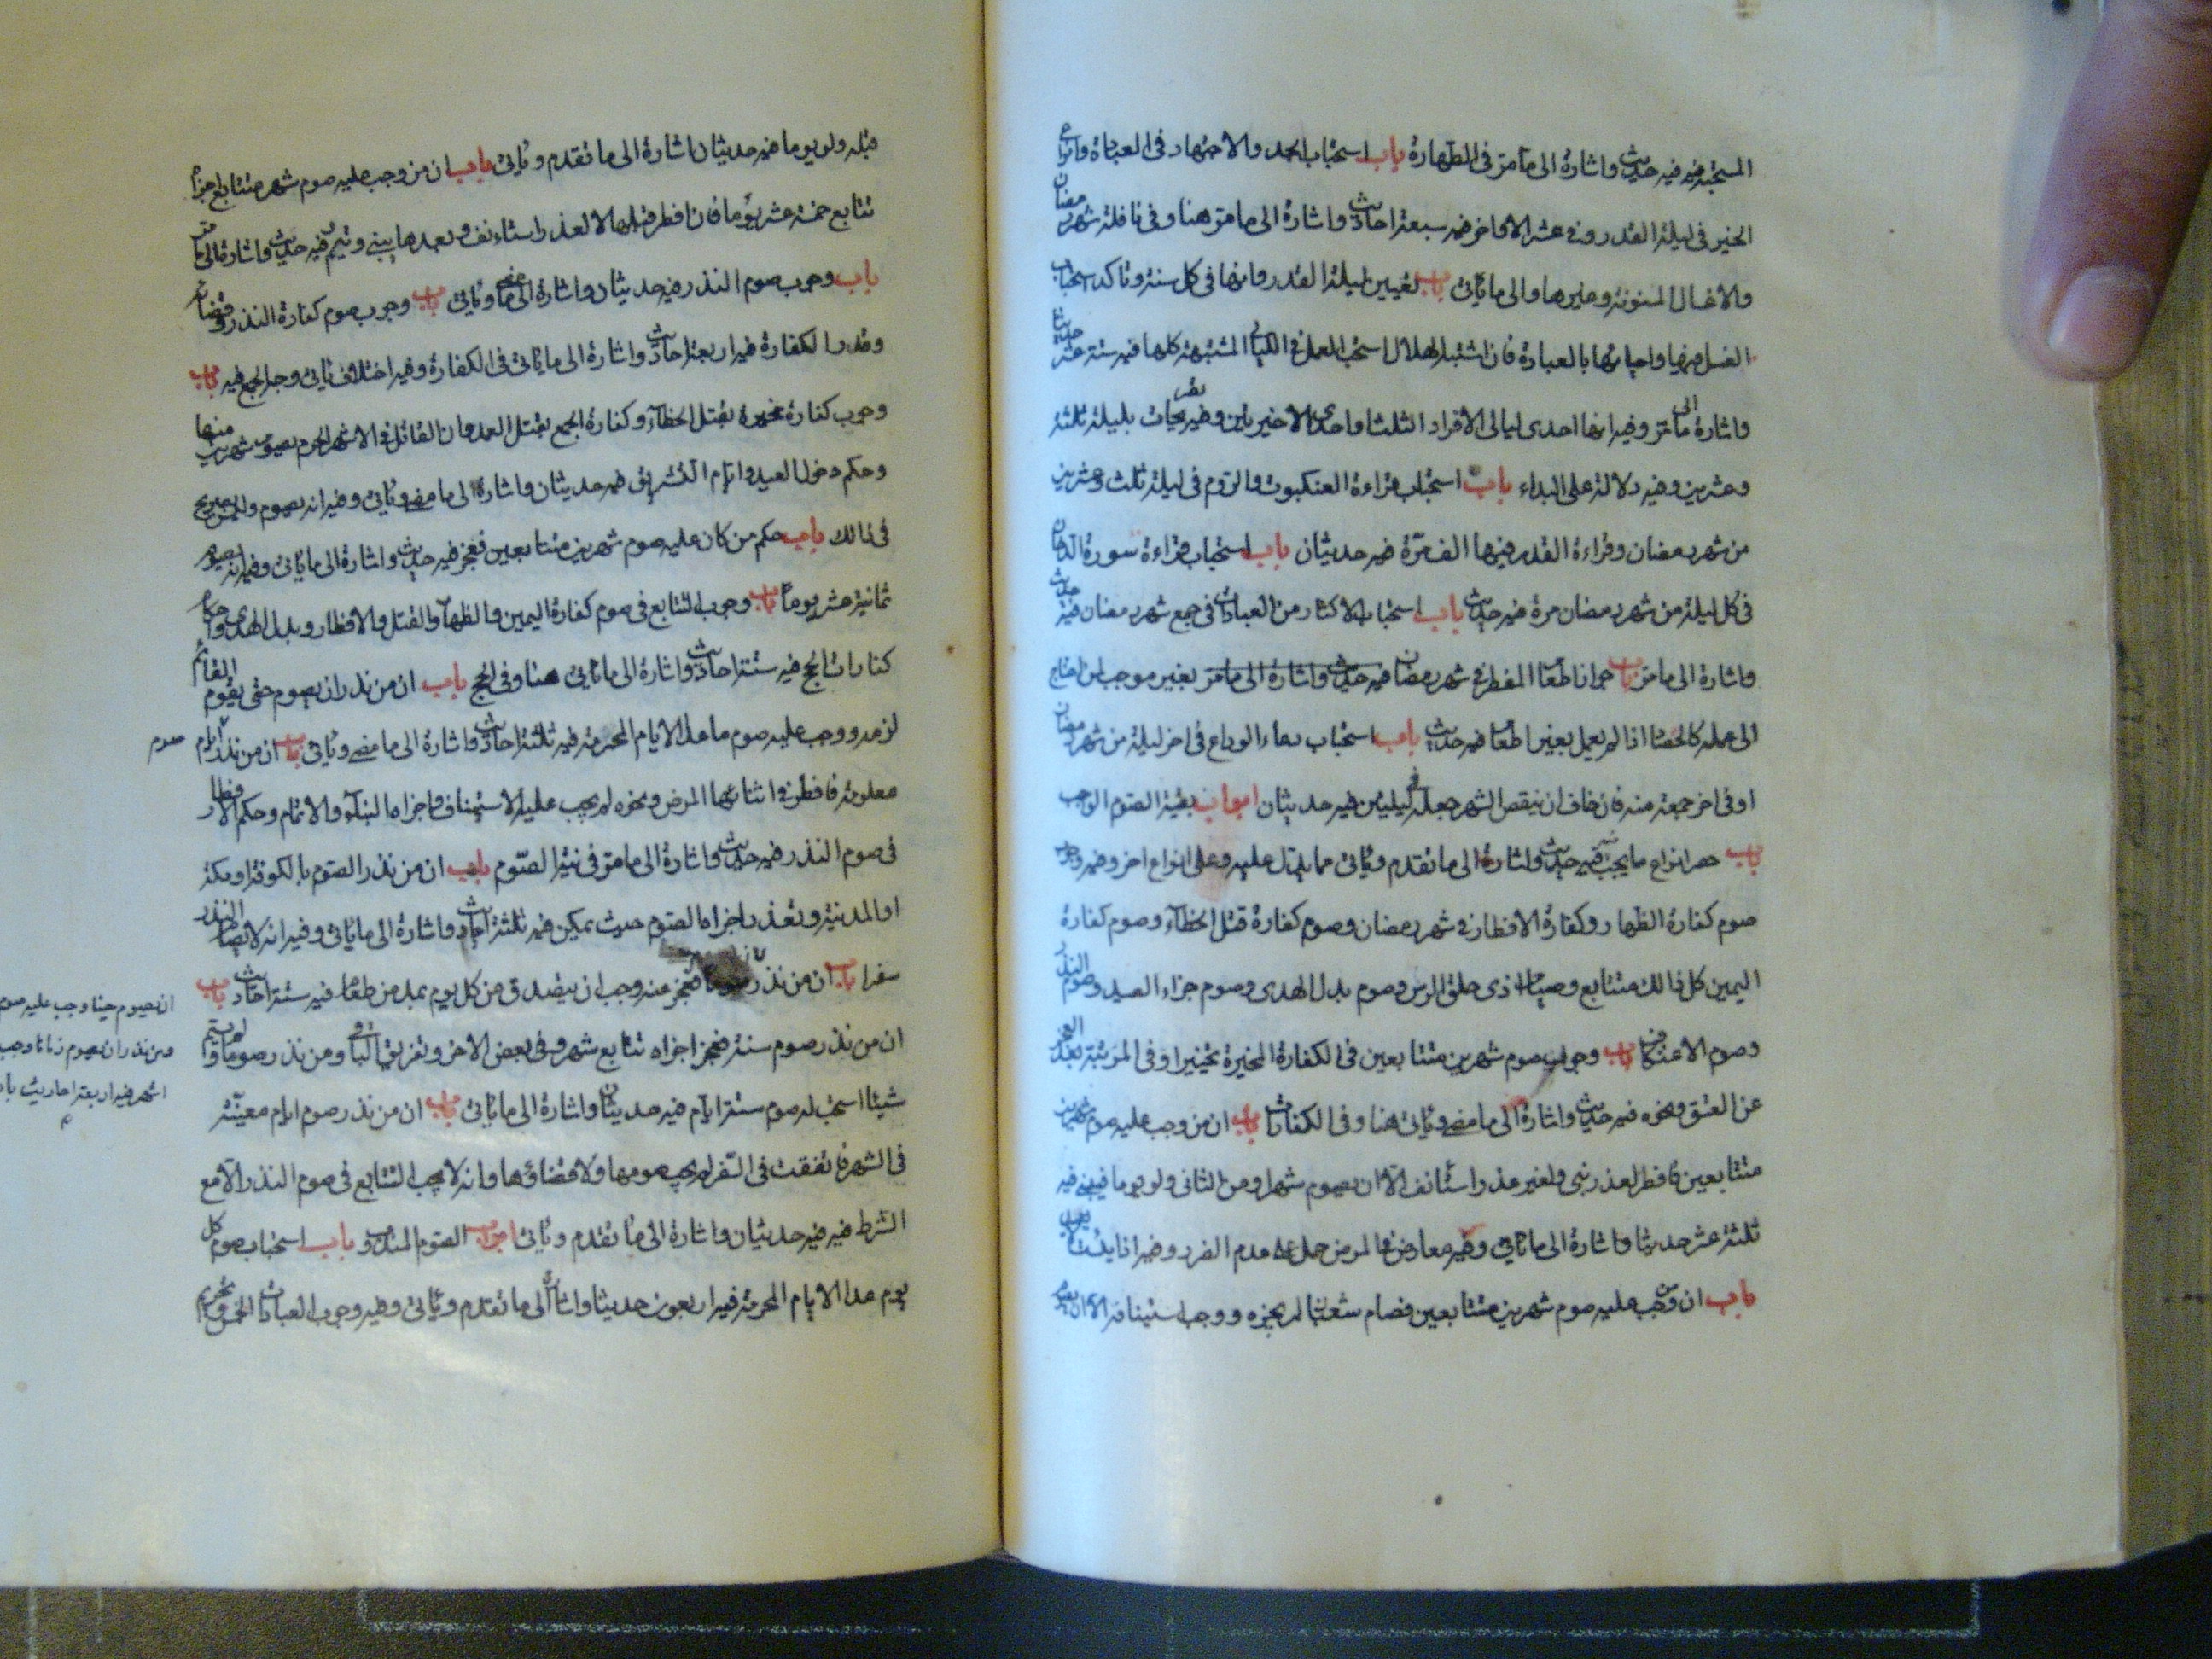 المستحبة فيه فيه حديث واشارة الى ما مر فى الطهارة باب استحباب الجد والاجتهاد فى العبادة وانواع
الخير فى ليلة القدر وفى عشر الاواخر فيه سبعة احاديث واشارة الى ما مر هنا وفى نافلة شهر رمضان
والاغسال المسنونة وغيرها والى ما ياتى باب تعيين ليلة القدر وانها فى كل سنة وتاكد استحباب
الغسل فيها واحيائها بالعبادة فان اشتبه الهلال استحب العمل فى الليالى المشتبهة كلها فيه ستة عشر حديثا
واشارة الى ما مر وفيه انها احدى ليالى الافراد الثلث او احدى الاخيرتين وفيه بليلة ثلثة
وعشرين وفيه دلالة على البداء باب استحباب قراءة العنكبوت والروم فى ليلة ثلث وعشرين
من شهر رمضان وقراءة القدر فيها الف مرة فيه حديثان باب استحباب قراءة سورة الدخان
فى كل ليلة من شهر رمضان مرة فيه حديث باب استحباب الاكثار من العبادات فى جمع شهر رمضان فيه حديث
واشارة الى ما مر باب جواز اطعام المفطر فى شهر رمضان فيه حديث واشارة الى ما مر بغير موجب لمن احتاج
الى عمله كالحصاد اذا لم يعمل بغير اطعام فيه حديث باب استحباب دعاء الوداع فى اخر ليلة من شهر رمضان
او فى اخر جمعة منه فان خاف ان ينقص الشهر جعله فى ليلتين فيه حديثان ابواب بقية الصوم الواجب
باب حصر انواع ما يجب منه فيه حديث واشارة الى ما تقدم وياتى مما يدل عليه وعلى انواع اخر وفيه وجوب
صوم كفارة الظهار وكفارة الافطار فى شهر رمضان وصوم كفارة قتل الخطآء وصوم كفارة
اليمين كل ذالك متتابع وصيام اذى حلق الراس وصوم بدل الهدى وصوم جزاء الصيد وصوم النذر
وصوم الاعتكاف باب وجوب صوم شهرين متتابعين فى الكفارة المخيرة تخييرا وفى المرتبة بعد العجز
عن العتق ونحوه فيه حديث واشارة الى ما مضى وياتى هنا وفى الكفارات باب ان من وجب عليه صوم شهرين
متتابعين فافطر لعذر بنى ولغير عذر استانف الا ان يصوم شهرا ومن الثانى ولو يوما فيبنى فيه
ثلثة عشر حديثا واشارة الى ما ياتى وفيه معارض فى المرض حمل على عدم الضرر وفيه
باب ان من وجب عليه صوم شهرين متتابعين فصام شعبان لم يجزه ووجب استينافه الا ان يصوم
قبله ولو يوما فيه حديثان اشارة الى ما تقدم وياتى باب ان من وجب عليه صوم شهر متتابع اجزاه
تتابع خمسة عشر يوما فان افطر قبلها لا لعذر استانف وبعدها يبنى ويتم فيه حديث واشارة الى ما مر
باب وجوب صوم النذر فيه حديثان واشارة الى ما مضى وياتى باب وجوب صوم كفارة النذر وقضائه
وقدر الكفارة فيه اربعة احاديث واشارة الى ما ياتى فى الكفارة وفيه اختلاف ياتى وجه الجمع فيه باب
وجوب كفارة مخيرة بقتل الخطآء وكفارة الجمع بقتل العمد وان القاتل فى الاشهر الحرم يصوم شهرين منها
وحكم دخول العيد وايام التشريق فيه حديثان واشارة الى ما مضى وياتى وفيه انه يصوم وليس بصريح
فى ذالك باب حكم من كان عليه صوم شهرين متتابعين فعجز فيه حديث واشارة الى ما ياتى وفيه انه يصوم
ثمانية عشر يوما باب وجوب التتابع فى صوم كفارة اليمين والظهار والقتل والافطار وبدل الهدى واحكام
كفارات الحج فيه ستة احاديث واشارة الى ما ياتى هنا وفى الحج باب ان من نذر ان يصوم حتى يقوم القائم
لزمه ووجب عليه صوم ما عدا الايام المحرمة فيه ثلثة احاديث واشارة الى ما مضى وياتى باب ان من نذر ايام
صوم
معلومة فافطر فى اثنائها المرض ونحوه لم يجب عليه الاستيناف واجزاه البنآء والاتمام وحكم الافطار
فى صوم النذر فيه حديث واشارة الى ما مر فى نية الصوم باب ان من نذر الصوم بالكوفة او مكة
او المدينة وتعذر اجزاه الصوم حيث يمكن فيه ثلثة احاديث واشارة الى ما ياتى وفيه انه لا يصام النذر
سفرا باب ان من نذر صوما فعجز عنه وجب ان يتصدق من كل يوم بمد من طعام فيه ستة احاديث باب
ان يصوم حينا وجب عليه صوم
ان من نذر صوم سنة فعجز اجزاه تتابع شهر وفى بعض الاخر وتفريق الباقى ومن نذر صوما ولم يسم
ومن نذر ان يصوم زمانا وجب
اشهر فيه اربعة احاديث باب
شيئا استحب له صوم ستة ايام فيه حديثان واشارة الى ما ياتى باب ان من نذر صوم ايام معينة
فى الشهر فاتفقت فى السفر لم يجب صومها ولا قضاؤها وانه لا يجب التتابع فى صوم النذر الا مع
الشرط فيه فيه حديثان واشارة الى ما تقدم وياتى ابواب الصوم المندوب باب استحباب صوم كل
يوم عدا الايام المحرمة فيه اربعون حديثا واشارة الى ما تقدم وياتى وفيه وجوب العبادات الخمس وتحريم